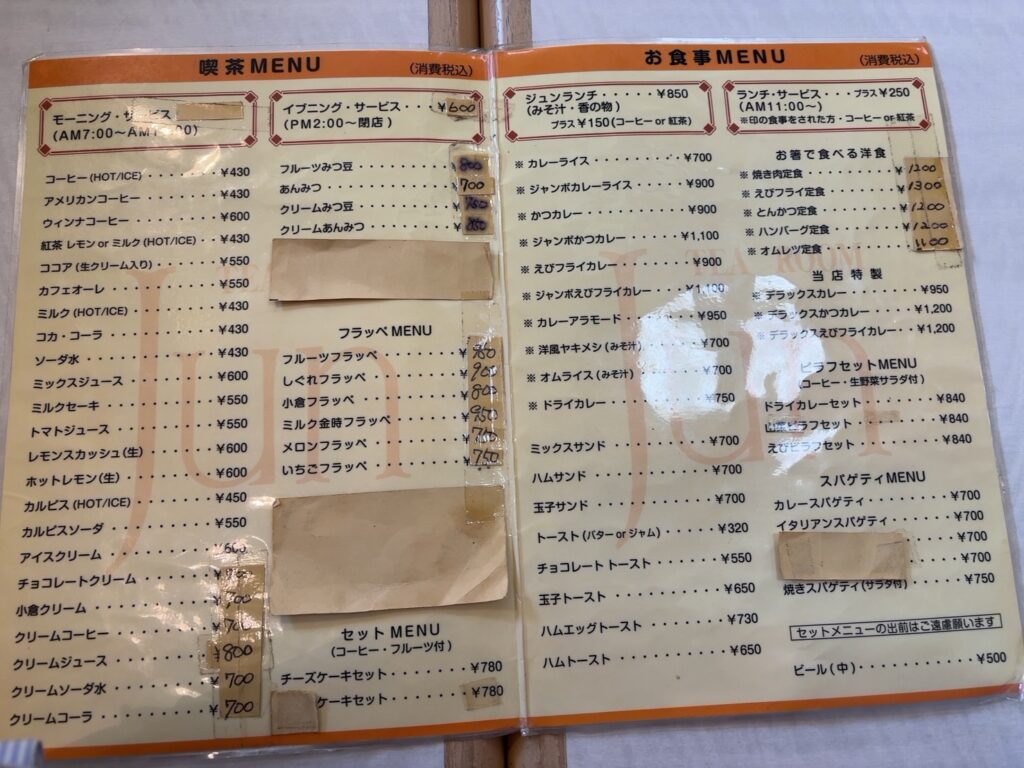 喫茶MENU (消費税込)
モーニング・サービス
(AM7:00～AM1 :00)
イブニング・サービス・・¥600
(PM2:00～閉店)
コーヒー(HOT/ICE) ¥430
アメリカンコーヒー ¥430
ウィンナコーヒー ¥600
紅茶 レモン or ミルク(HOT/ICE) ¥430
ココア(生クリーム入り) ¥550
カフェオーレ ¥550
ミルク(HOT/ICE) ¥430
コカ・コーラ ¥430
ソーダ水 ¥430
ミックスジュース ¥600
ミルクセーキ ¥550
トマトジュース ¥550
レモンスカッシュ(生) ¥600
ホットレモン(生) ¥600
カルピス(HOT/ICE) ¥450
カルピスソーダ ¥550
アイスクリーム ¥600
チョコレートクリーム ¥
小倉クリーム ¥700
クリームコーヒー ¥700
クリームジュース ¥800
クリームソーダ水 ¥700
クリームコーラ ¥700
フルーツみつ豆 ¥800
あんみつ ¥700
クリームみつ豆 ¥
クリームあんみつ ¥850
フラッペMENU
フルーツフラッペ ¥950
しぐれフラッペ ¥900
小倉フラッペ ¥800
ミルク金時フラッペ ¥950
メロンフラッペ ¥750
いちごフラッペ ¥750
セットMENU
(コーヒー・フルーツ付)
チーズケーキセット ¥780
ケーキセット ¥780
お食事MENU (消費税込)
ジュンランチ・・・・・¥850
(みそ汁・香の物)
プラス¥150(コーヒー or 紅茶)
ランチ・サービス・・・プラス¥250
(AM11:00～)
※印の食事をされた方・コーヒー or 紅茶
※ カレーライス ¥700
※ ジャンボカレーライス ¥900
※ かつカレー ¥900
※ ジャンボかつカレー ¥1,100
※ えびフライカレー ¥900
※ ジャンボえびフライカレー ¥1,100
※ カレーアラモード ¥950
※ 洋風ヤキメシ(みそ汁) ¥700
※ オムライス(みそ汁) ¥700
※ ドライカレー ¥750
ミックスサンド ¥700
ハムサンド ¥700
玉子サンド ¥700
トースト(バター or ジャム) ¥320
チョコレートトースト ¥550
玉子トースト ¥650
ハムエッグトースト ¥730
ハムトースト ¥650
お箸で食べる洋食
※ 焼き肉定食 ¥1200
※ えびフライ定食 ¥1300
※ とんかつ定食 ¥1200
※ ハンバーグ定食 ¥1200
※ オムレツ定食 ¥1100
当店特製
※ デラックスカレー ¥950
※ デラックスかつカレー ¥1,200
※ デラックスえびフライカレー ¥1,200
ピラフセットMENU
(コーヒー・生野菜サラダ付)
ドライカレーセット ¥840
ピラフセット ¥840
えびピラフセット ¥840
スパゲティMENU
カレースパゲティ ¥700
イタリアンスパゲティ ¥700
¥700
¥700
焼きスパゲティ(サラダ付) ¥750
セットメニューの出前はご遠慮願います
ビール(中) ¥500
TEA ROOM
Jun